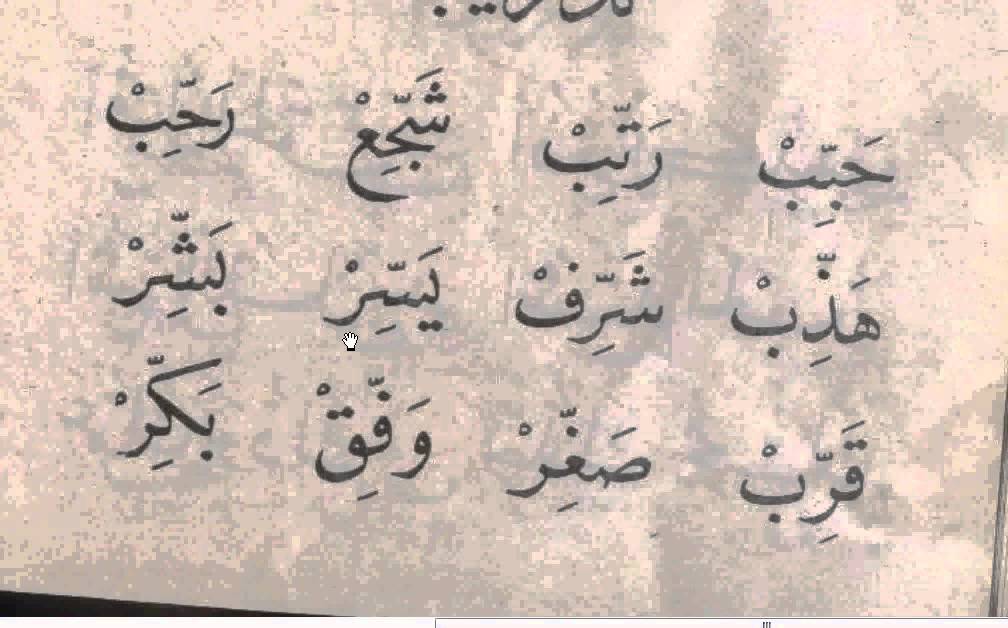 حَبِّبْ رَتِّبْ شَجِّعْ رَحِّبْ
هَذِّبْ شَرِّفْ يَسِّرْ بَشِّرْ
قَرِّبْ صَغِّرْ وَفِّقْ بَكِّرْ